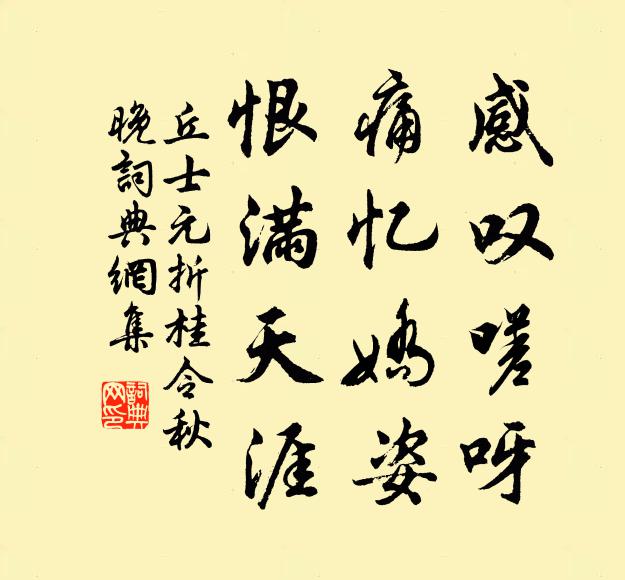 感叹嗟呀
痛忆娇姿
恨满天涯
丘士元折桂令秋
晚詞典網集
詞典网印